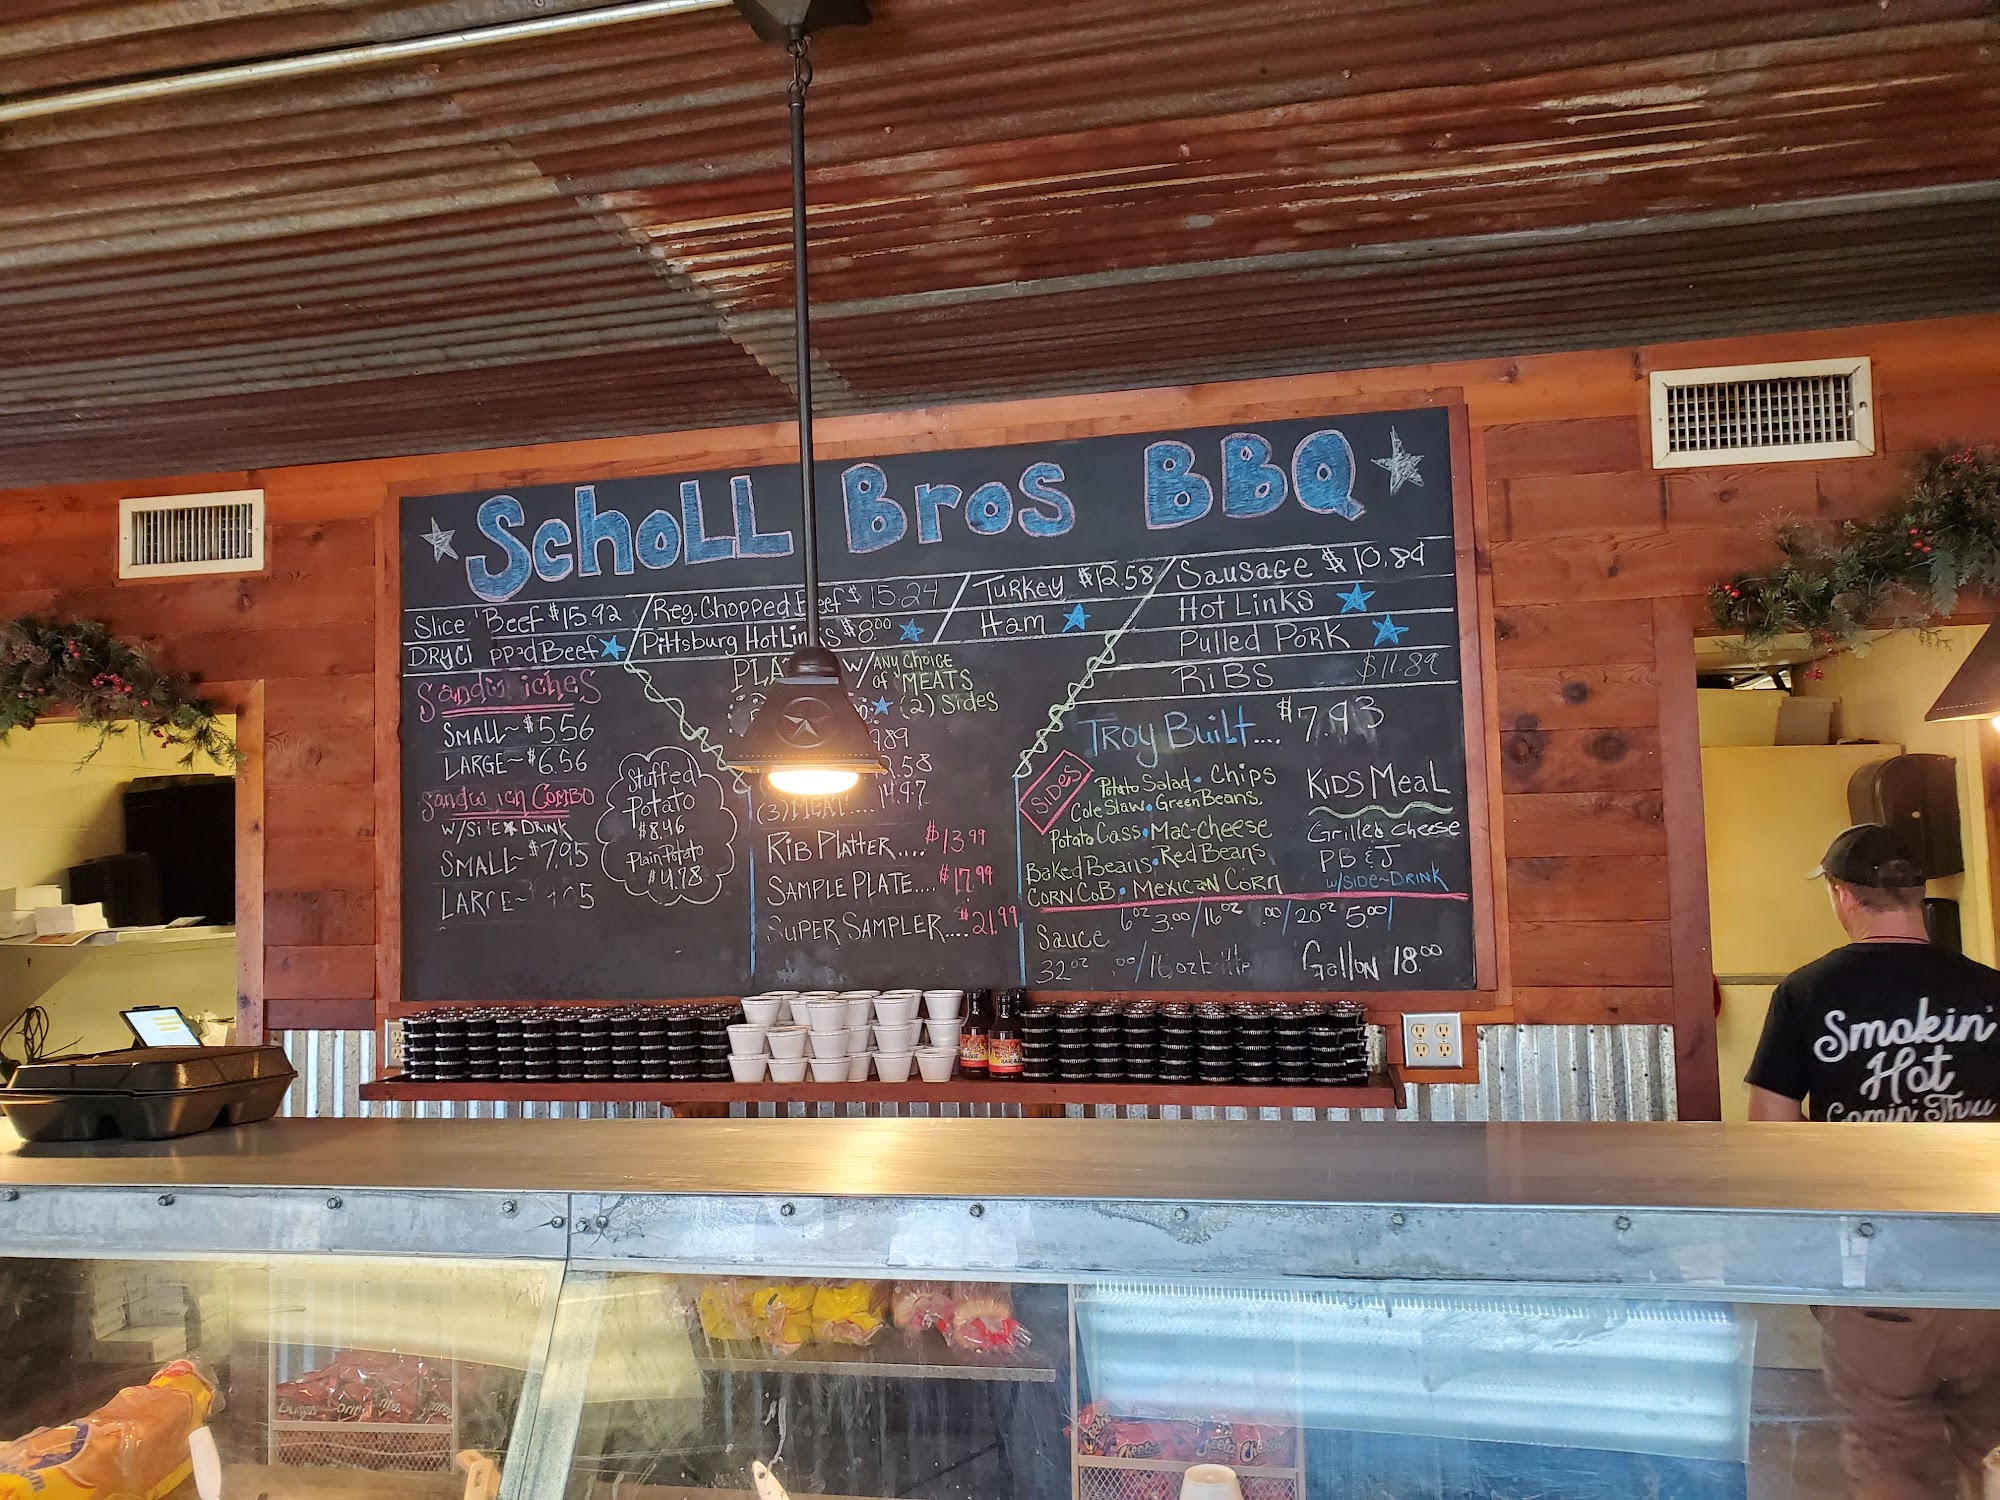 Scholl Bros BBQ
Slice Beef $15.92
Reg. Chopped Beef $15.24
Turkey $12.58
Sausage $10.89
DRY Beef
Pittsburg Hot Links $8.00
Ham
Hot Links
Pulled Pork
Ribs $11.89
Sandwiches
Small~ $5.56
Large~ $6.56
Sandwich Combo
w/Side Drink
Small~ $7.95
Large~
Stuffed
Potato
$8.46
Plain Potato
$4.78
w/ Any Choice
of MEATS
(2) Sides
(3) MEAT.... 14.97
Rib Platter.... $13.99
Sample Plate.... $17.99
Super Sampler.... $21.99
Troy Built.... $7.93
Sides
Potato Salad • Chips
Cole Slaw • Green Beans
Potato Cass • Mac-cheese
Baked Beans • Red Beans
Corn Cob • Mexican Corn
Kids Meal
Grilled cheese
PB & J
w/Side~Drink
Sauce
6oz 3.00/16oz .00/20oz 5.00/
32oz .00/16oz
Gallon 18.00
Smokin'
Hot
Comin' Thru
Cheetos